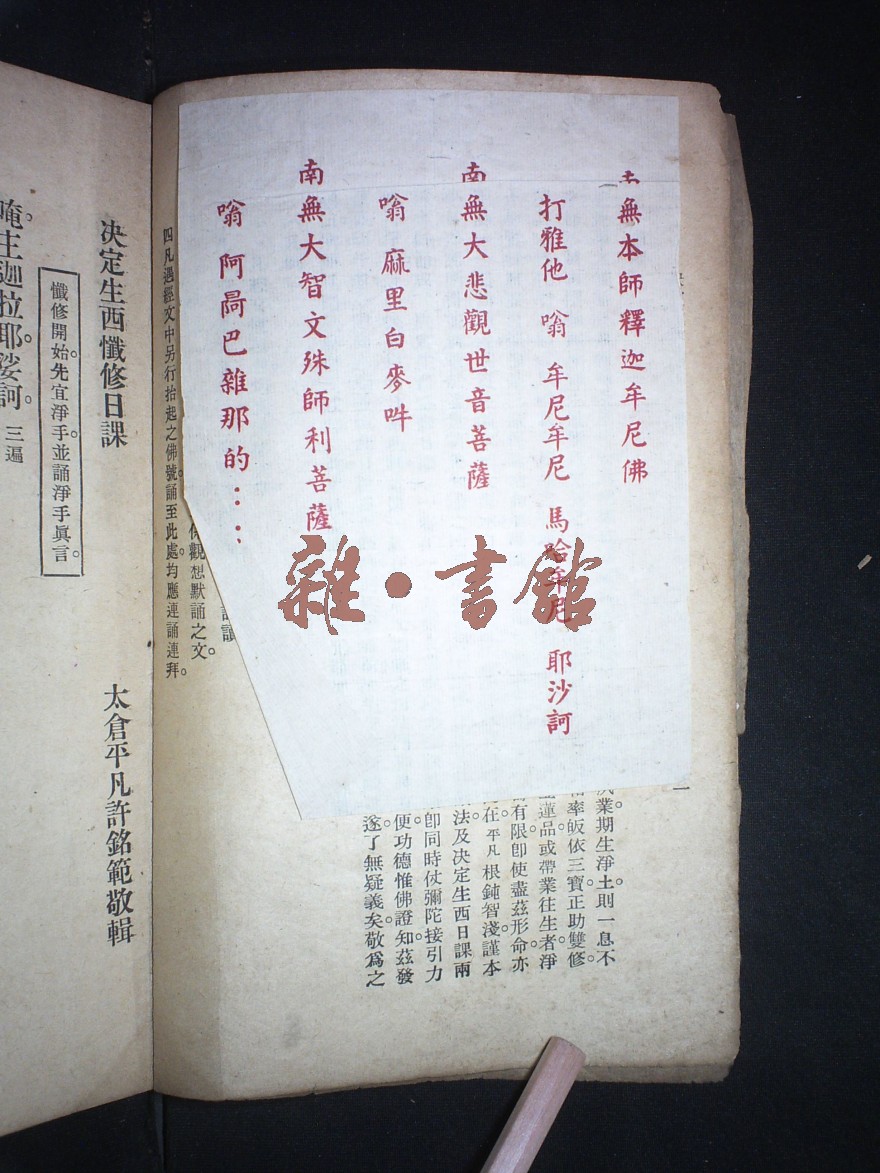 無本師釋迦牟尼佛
打雅他 嗡 牟尼牟尼 馬哈牟尼 耶沙訶
南無大悲觀世音菩薩
嗡 麻里白麥吽
南無大智文殊師利菩薩
嗡 阿咼巴雜那的：：
業期生淨土則一息不
率皈依三寶正助雙修。
蓮品或帶業往生者淨
有限卽使盡茲形命。亦
在平凡根鈍智淺。謹本
法及決定生西日課兩
卽同時仗彌陀接引力
便。功德惟佛證知。茲發
遂了無疑義矣。敬爲之
觀想默誦之文。
四凡遇經文中另行抬起之佛號。誦至此處。均應連誦連拜。
決定生西懺修日課
太倉平凡許銘範敬輯
懺修開始。先宜淨手。並誦淨手眞言。
唵。主迦拉耶。娑訶。 三遍
雜·書館